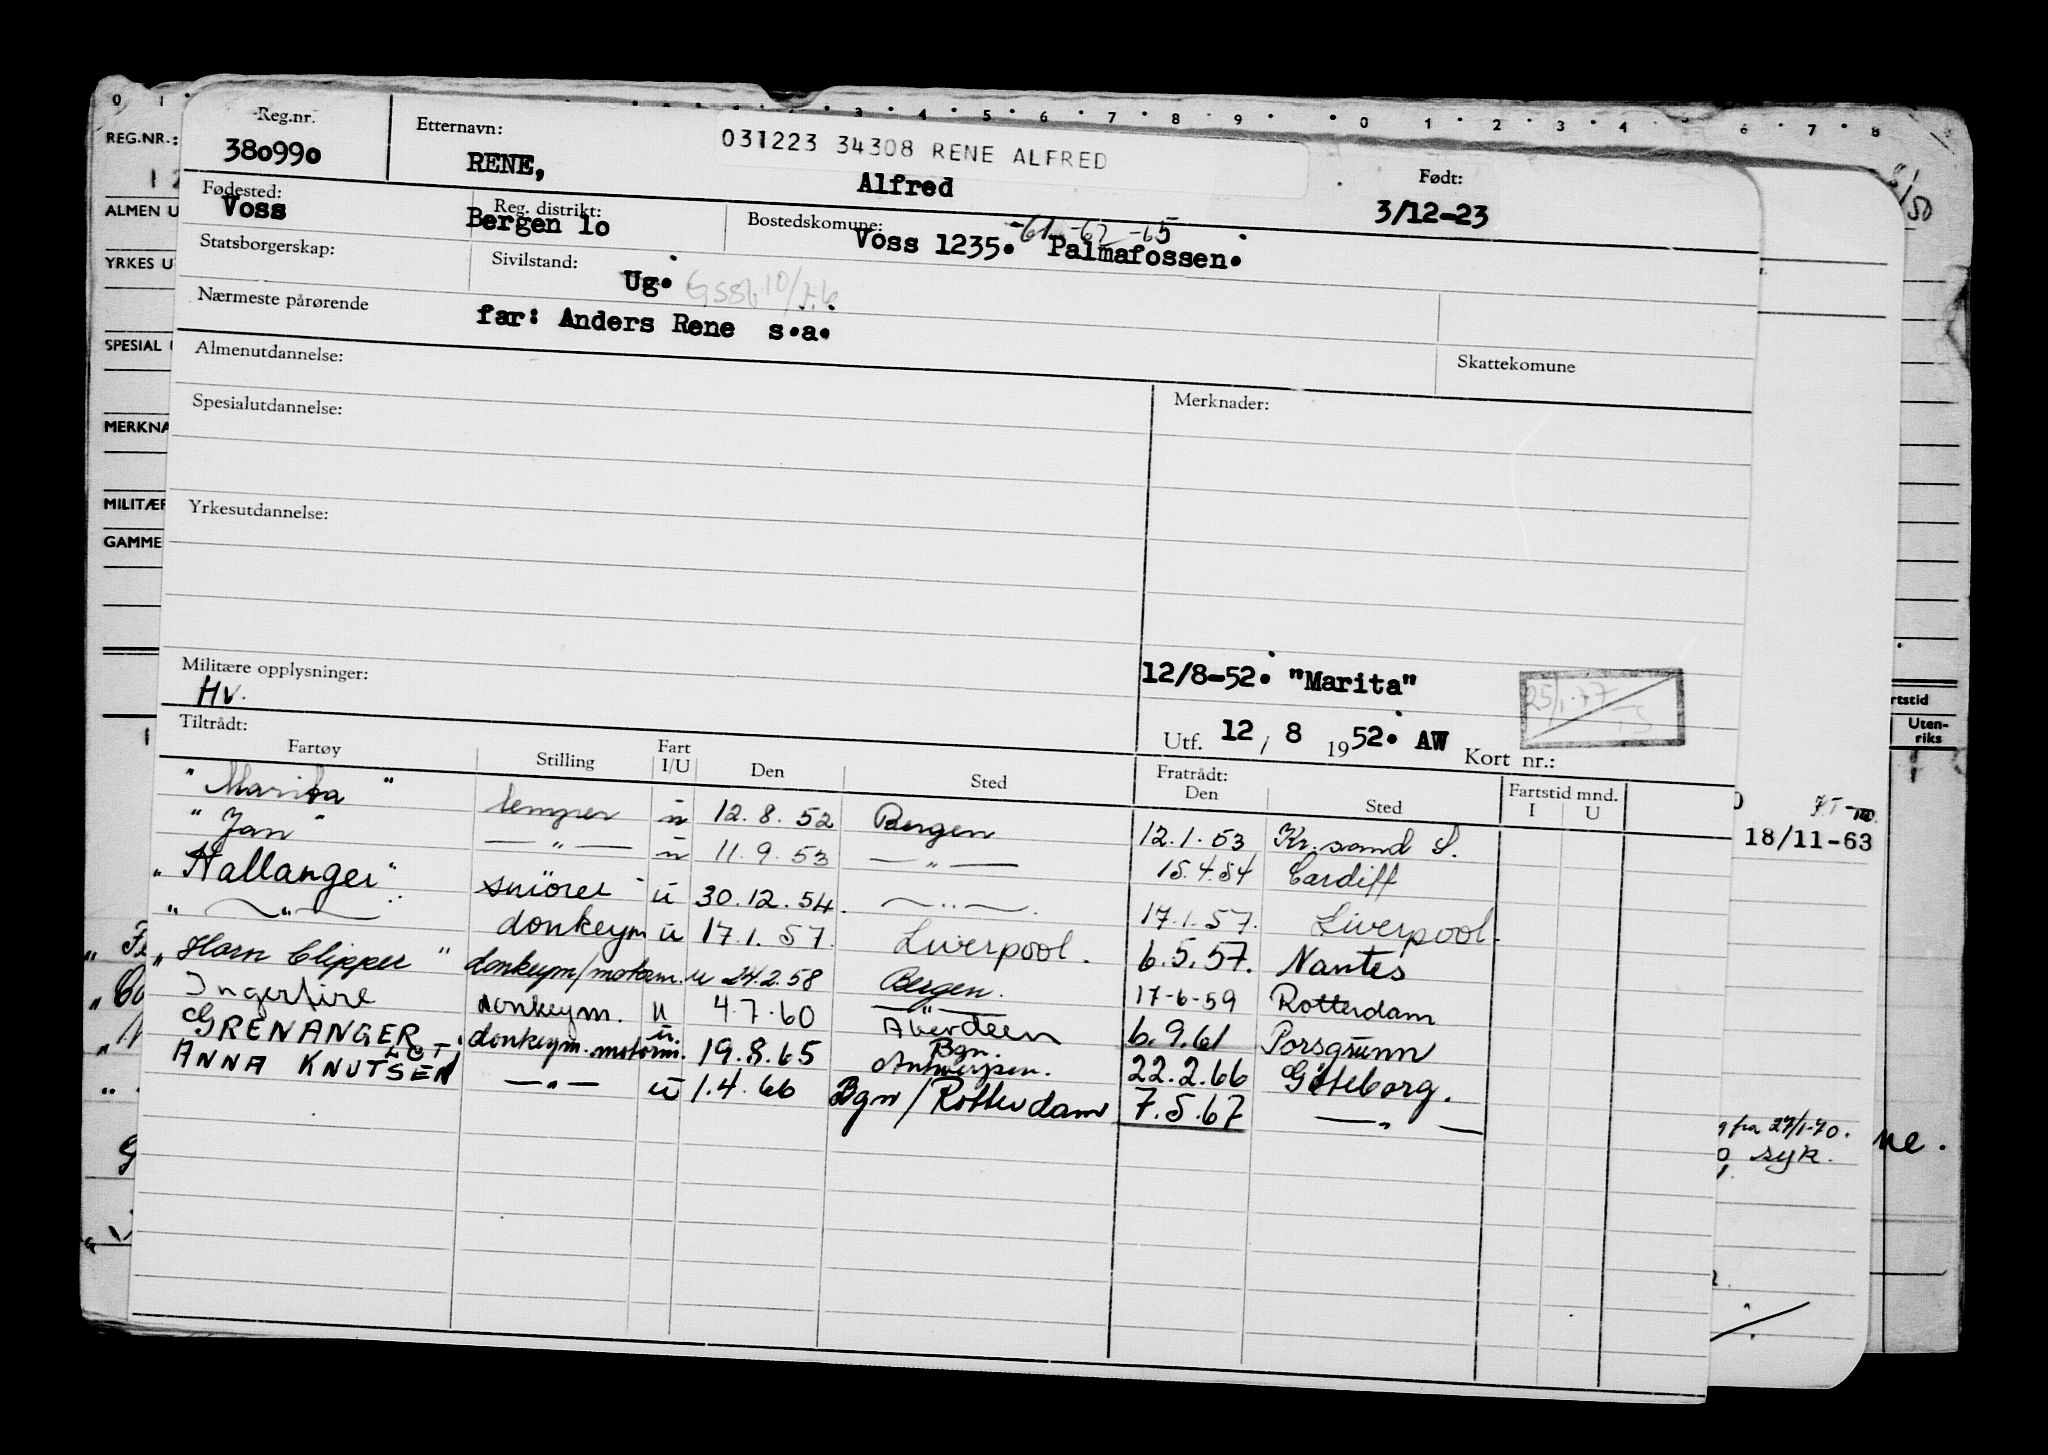 0 1 3 4 5 6 7 8 9 0 1 2 3 4 6 7 8
REG.NR.: Reg.nr. Etternavn: 031223 34308 RENE ALFRED Født:
38o99o RENE, Alfred 3/12-23
ALMEN U Fødested: Reg. distrikt: Bostedskomune: -61 -62 -65
Voss Bergen 1o Voss 1235. Palmafossen.
YRKES U Statsborgerskap: Sivilstand: Ug.
Nærmeste pårørende far: Anders Rene s.a.
SPESIAL Almenutdannelse: Skattekomune
Spesialutdannelse: Merknader:
MERKNA
MILITÆR Yrkesutdannelse:
GAMME
Militære opplysninger: 12/8-52. "Marita"
Hv.
Utf. 12 / 8 1952. AW Kort nr.:
Tiltrådt: Fratrådt:
Fartøy Stilling Fart I/U Den Sted Den Sted Fartstid mnd. I U
rtstid
Uten-
riks
"Marita" lemper u 12.8.52 Bergen 12.1.53 Kr.sand S.
"Jan" — " — u 11.9.53 — " — 15.4.54 Cardiff
18/11-63
"Hallanger" smörer u 30.12.54. — " —. 17.1.57. Liverpool.
" — " — donkeym u 17.1.57. Liverpool. 6.5.57. Nantes
"Horn Clipper" donkeym/motorm. u 24.2.58 Bergen. 17-6-59 Rotterdam
Ingerfire donkeym. u 4.7.60 Aberdeen 6.9.61 Porsgrunn
GRENANGER donkeym. motorm. u. 19.8.65 Bgn. Antwerpen. 22.2.66 Göteborg.
ANNA KNUTSEN — " — u 1.4.66 Bgn/Rotterdam 7.5.67 — " —
fra 27/1-70.
syk.
ne.